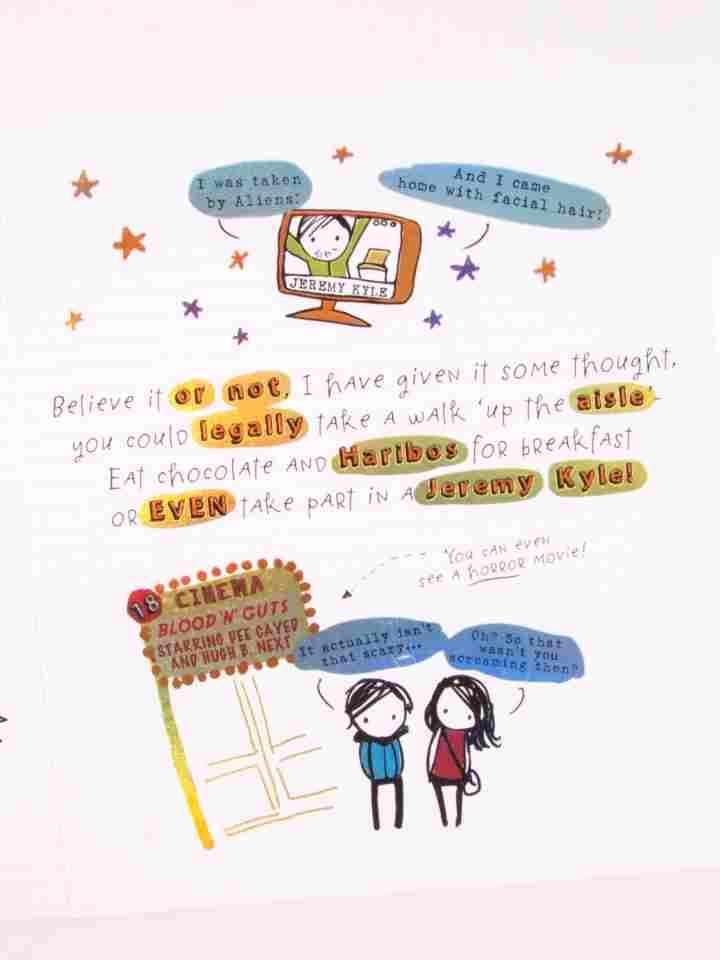 I was taken
by Aliens!
And I came
home with facial hair!
JEREMY KYLE
Believe it or not, I have given it some thought,
you could legally take a walk 'up the aisle'
Eat chocolate and Haribos for breakfast
or EVEN take part in a Jeremy Kyle!
You can even
see a horror movie!
18 CINEMA
BLOOD 'N' GUTS
STARRING DEE CAYED
AND HUGH B. NEXT
It actually isn't
that scary...
Oh? So that
wasn't you
screaming then?